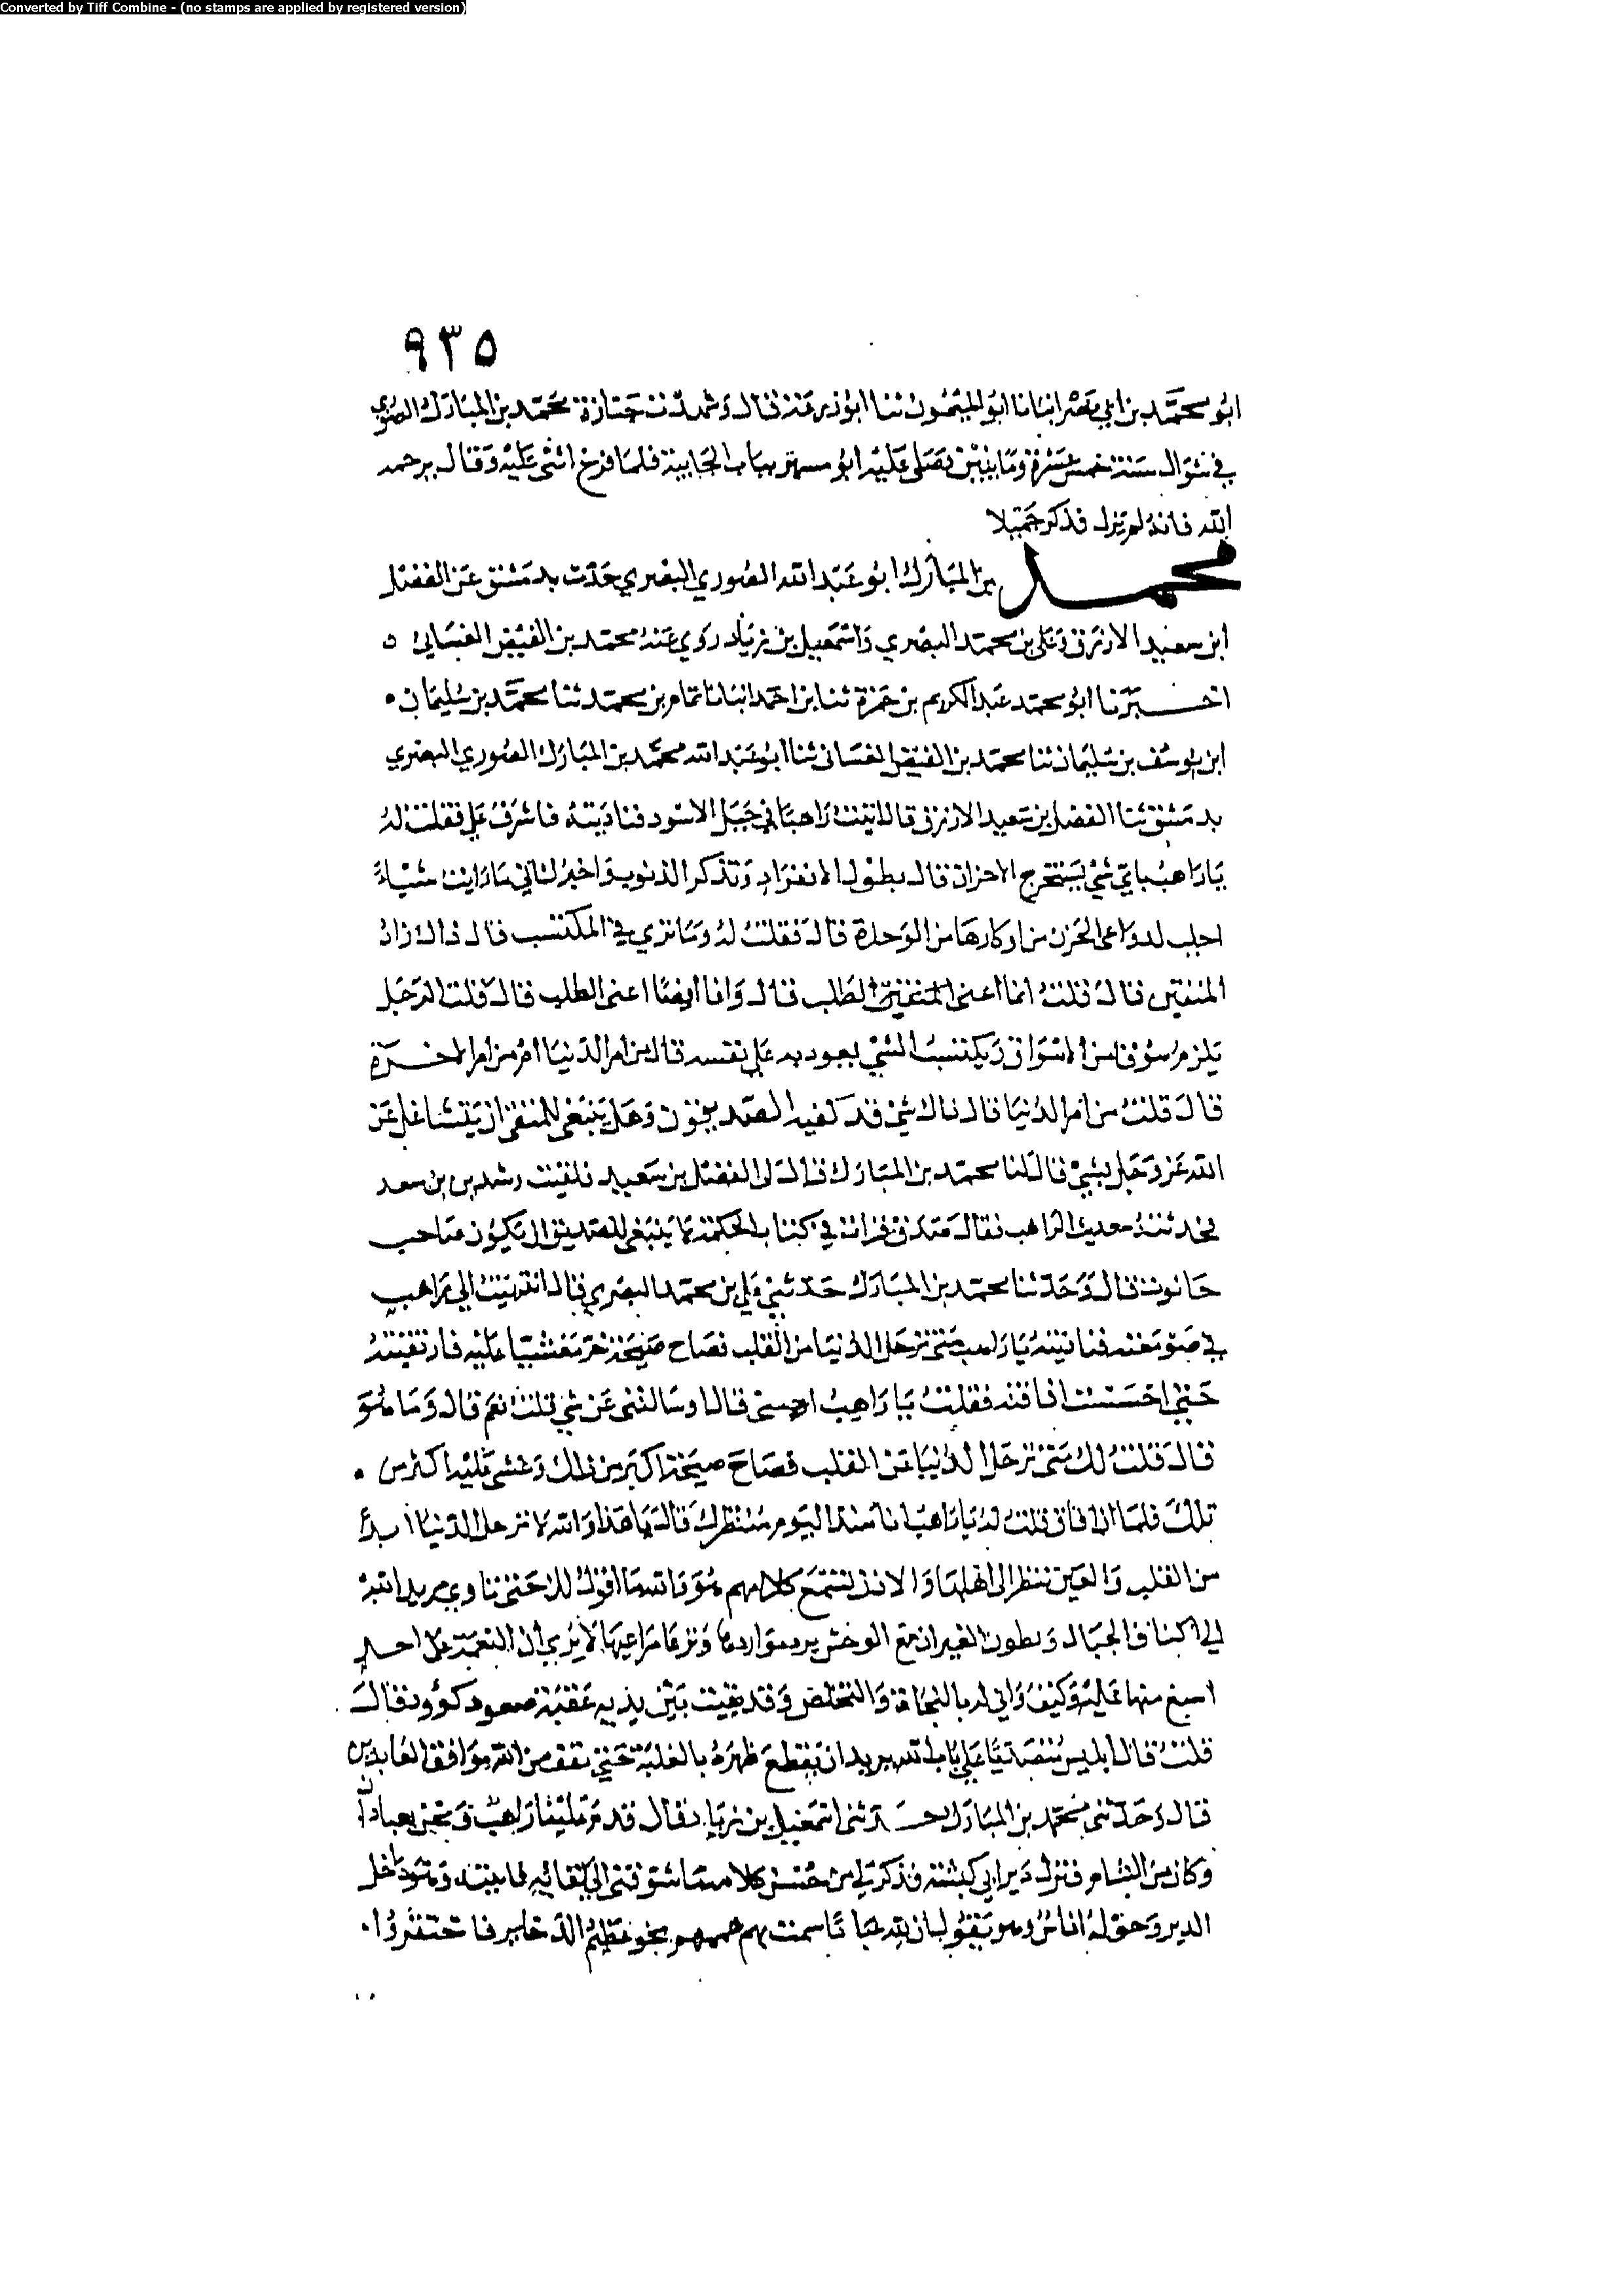 Converted by Tiff Combine - (no stamps are applied by registered version)
٩٣٥
ابو محمد بن ابي نصر انبانا ابو الميمون ثنا ابو زرعة قال وشهدت جنازة محمد بن المبارك الصوري
في شوال سنة خمس عشرة ومايتين فصلى عليه ابو مسهر بباب الجابية فلما فرغ اثنى عليه وقال يرحمه
الله فانه لم يزل فذكر جميلا
محمد بن المبارك ابو عبد الله الصوري البصري حدث بدمشق عن الفضل
ابن سعيد الازرق وعلي بن محمد البصري واسمعيل بن زياد روى عنه محمد بن الفيض الغساني ٥
اخبرنا ابو محمد عبد الكريم بن حمزة ثنا بن احمد انبانا تمام بن محمد ثنا محمد بن سليمان
ابن يوسف بن سليمان ثنا محمد بن الفيض الغساني ثنا ابو عبد الله محمد بن المبارك الصوري البصري
بدمشق ثنا الفضل بن سعيد الازرق قال اتيت راهبا في جبل الاسود فناديته فاشرف علي فقلت له
يا راهب باي شي يستخرج الاحزان قال بطول الانفراد وتذكر الذنوب واخبرك اني ما رايت شياء
اجلب لدواعي الحزن من اوكارها من الوحدة قال فقلت له وما ترى في المكتسب قال ذاك زاد
المتقين قال قلت انما اعني الطلب قال وانا ايضا اعني الطلب قال قلت الرجل
يلزم سوقا من الاسواق ويكتسب الشي يجود به على نفسه قال من امر الدنيا ام من امر الاخرة
قال قلت من امر الدنيا قال ذاك شي قد كفيه الصديقون وهل ينبغي للمتقي ان يتشاغل عن
الله عز وجل بشي قال لنا محمد بن المبارك قال لي الفضل بن سعيد فلقيت رشدين بن سعد
فحدثته حديث الراهب فقال صدق قرات في كتاب الحكمة ما ينبغي للصديق ان يكون صاحب
حانوت قال وحدثنا محمد بن المبارك حدثني علي بن محمد البصري قال انتهيت الى راهب
في صومعته فناديته يا راهب متى ترحل الدنيا من القلب فصاح صيحة خر مغشيا عليه فارتقيته
حتى احسست افاقته فقلت يا راهب قال اوسالتني عن شي قلت نعم قال وما هو
قال قلت لك متى ترحل الدنيا عن القلب فصاح صيحة اكبر من ذلك وغشي عليه اكثر من
تلك فلما ان افاق قلت له يا راهب انا منذ اليوم منتظرك قال يا هذا والله لا ترحل الدنيا ابدا
من القلب والعين تنظر الى اهلها والاذن تستمع كلامهم هو والله ما اقول لك حتى تاوي مريد الله
الى اكناف الجبال وبطون الغيران مع الوحش يرد مواردها وترعا مراعيها لا يرى ان النعمة على احد
اسبغ منها عليه وكيف واني له بالنجاة والتخلص وقد بقيت بين يديه عقبة صعود كؤود فقال
قلت قال ابليس منتصبا على باب الله يريد ان يقطع ظهره بالغلبة حتى تقف من الله مواقف العابدين
قال وحدثني محمد بن المبارك حدثني اسمعيل بن زياد قال قدم علينا راهب ونحن بعبادان
وكان من الشام فنزل دير ابي كبشة فذكر لي من حسن كلامه ما شوقني الى لقائه فاتيته وهو داخل
الدير وحوله اناس وهو يقول ان لله عبادا سمت بهم هممهم نحو عظيم الذخاير فاحتقروا